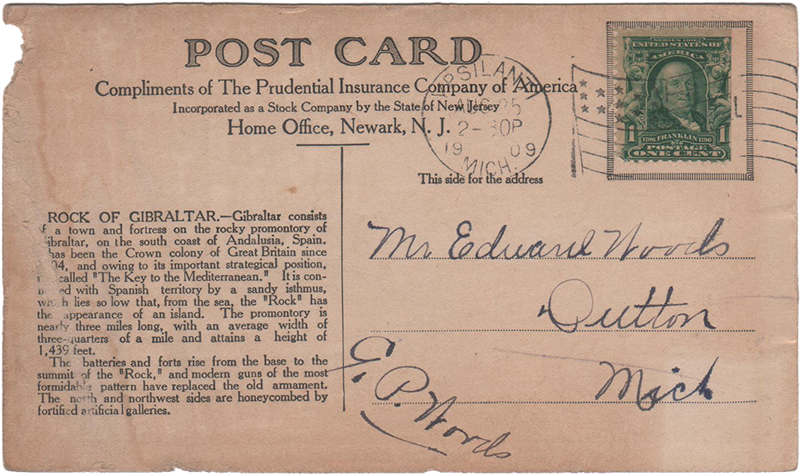 POST CARD
Compliments of The Prudential Insurance Company of America
Incorporated as a Stock Company by the State of New Jersey
Home Office, Newark, N. J.
This side for the address
YPSILANTI
AUG 25
2- 30P
19 09
MICH.
SERIES 1902
UNITED STATES OF
AMERICA
1 FRANKLIN 1
POSTAGE
ONE CENT
ROCK OF GIBRALTAR.—Gibraltar consists
of a town and fortress on the rocky promontory of
Gibraltar, on the south coast of Andalusia, Spain.
has been the Crown colony of Great Britain since
04, and owing to its important strategical position,
called "The Key to the Mediterranean." It is con-
nected with Spanish territory by a sandy isthmus,
which lies so low that, from the sea, the "Rock" has
the appearance of an island. The promontory is
nearly three miles long, with an average width of
three-quarters of a mile and attains a height of
1,439 feet.
The batteries and forts rise from the base to the
summit of the "Rock," and modern guns of the most
formidable pattern have replaced the old armament.
The north and northwest sides are honeycombed by
fortified artificial galleries.
Mr Edward Woods
Dutton
Mich
G. P. Woods